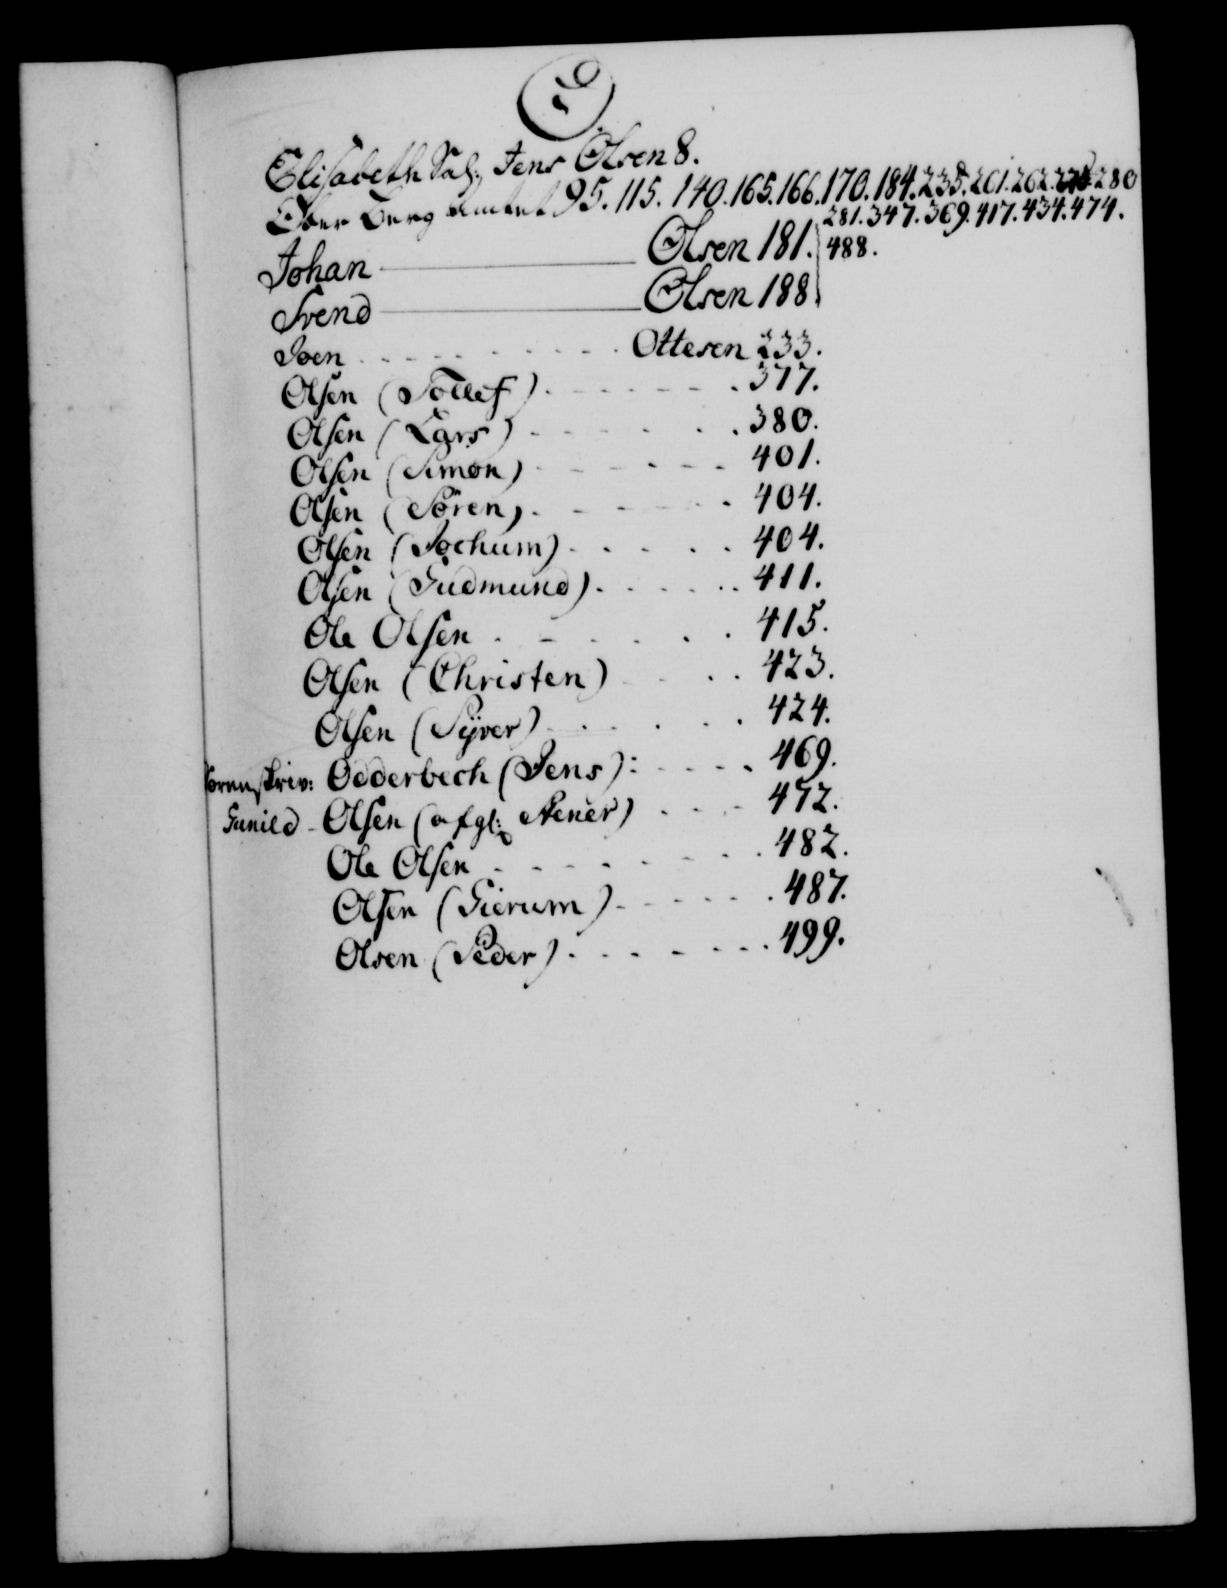 O
Elisabeth Sal: Jens Olsen 8.
Ober Berg Amtet 95. 115. 140. 165. 166. 170. 184. 235. 261. 262. 280
281. 347. 369. 417. 434. 474.
488.
Johan Olsen 181.
Svend Olsen 188
Joen Ottesen 233.
Olsen (Tollef) 377.
Olsen (Lars) 380.
Olsen (Simon) 401.
Olsen (Sören) 404.
Olsen (Jochum) 404.
Olsen (Gudmund) 411.
Ole Olsen 415.
Olsen (Christen) 423.
Olsen (Syver) 424.
Sorenskriv: Odderbech (Jens): 469.
Gunild - Olsen (afgl: Stener) 472.
Ole Olsen 482.
Olsen (Gierum) 487.
Olsen (Peder) 499.